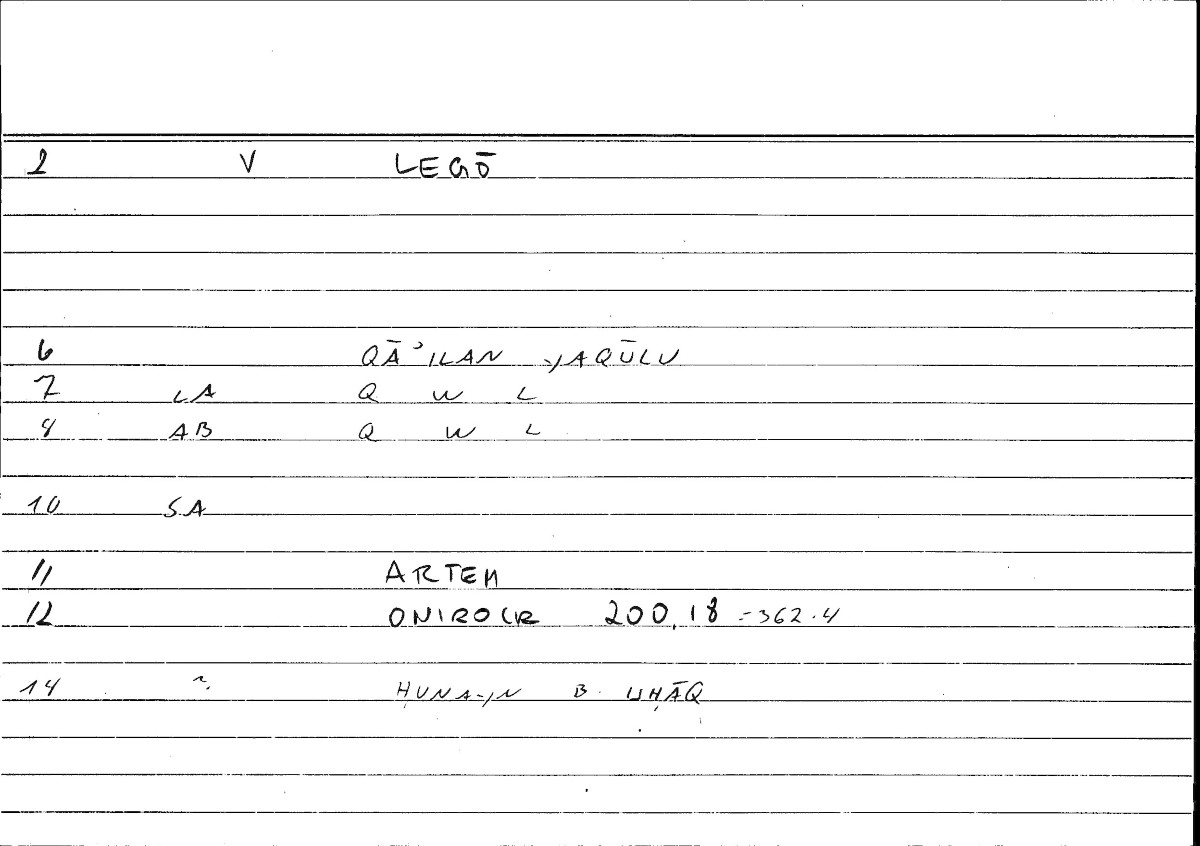 2 V LEGŌ
6 QĀʾILAN YAQŪLU
7 LA Q W L
8 AB Q W L
10 SA
11 ARTEM
12 ONIROCR 200,18 -362.4
14 ḤUNAYN B. ISḤĀQ